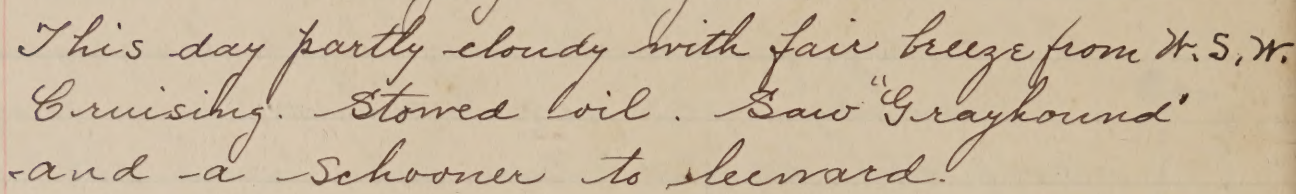 This day partly cloudy with fair breeze from W.S.W.
Cruising. Stowed oil. Saw "Grayhound"
and a schooner to leeward.